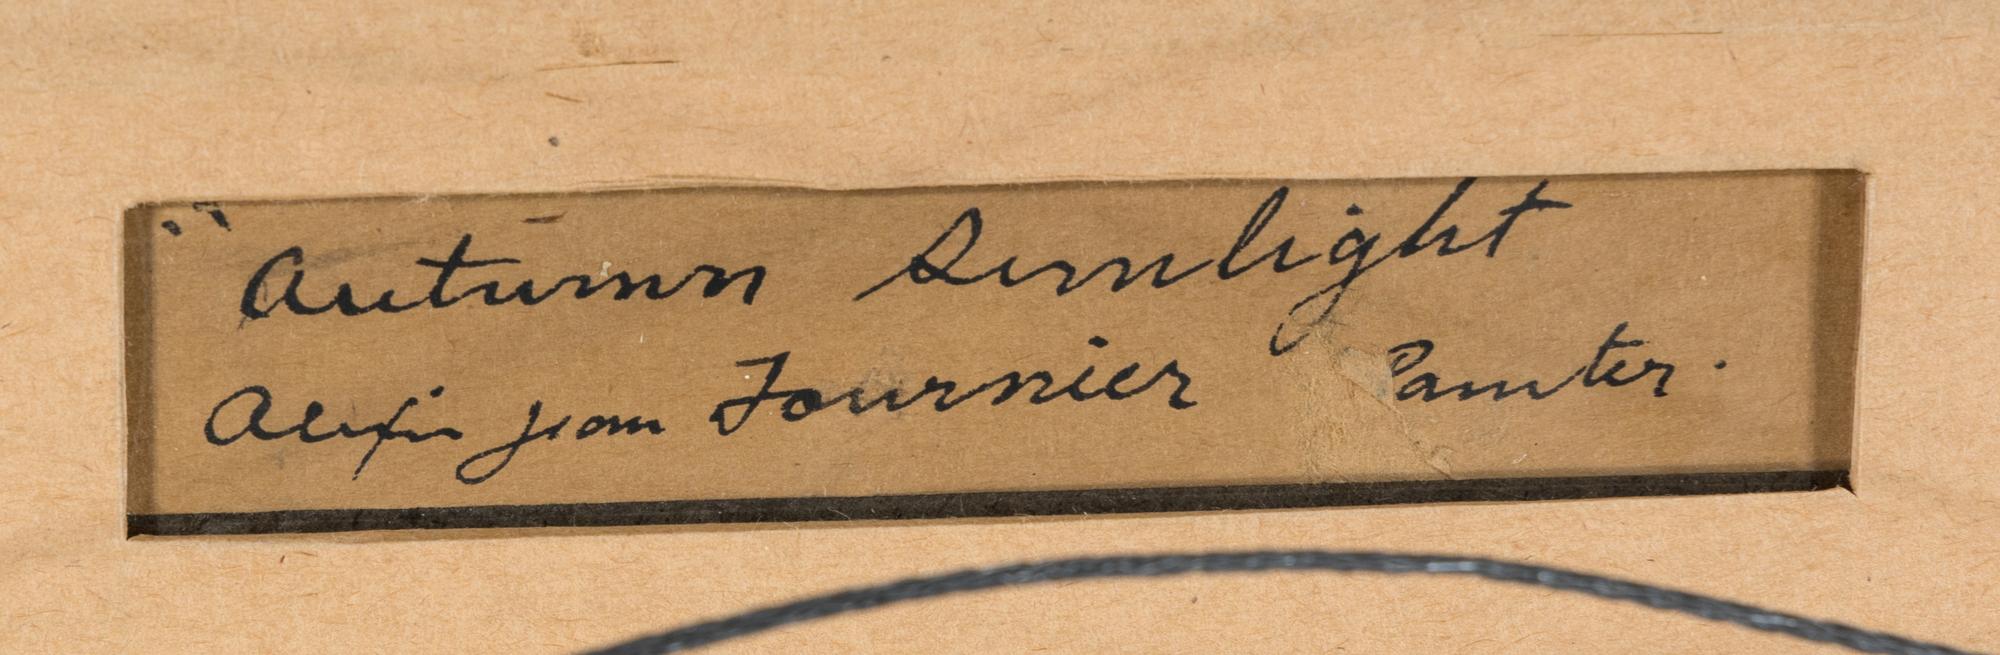 "Autumn Sunlight
Alexis Jean Fournier Painter.